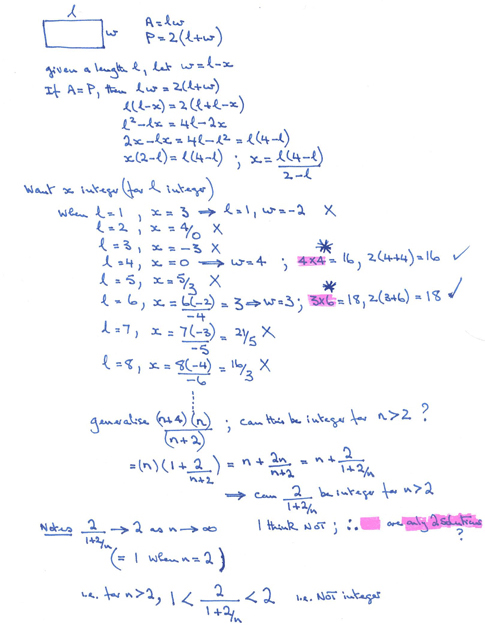 l
w
A = lw
P = 2(l+w)
given a length l, let w = l-x
If A = P, then lw = 2(l+w)
l(l-x) = 2(l+l-x)
l²-lx = 4l-2x
2x-lx = 4l-l² = l(4-l)
x(2-l) = l(4-l) ; x = l(4-l)/2-l
Want x integer (for l integer)
When l=1, x = 3 → l=1, w=-2 X
l=2, x = 4/0 X
l=3, x = -3 X
l=4, x = 0 ⟹ w=4 ; 4×4 = 16, 2(4+4) = 16 ✓
l=5, x = 5/3 X
l=6, x = 6(-2)/-4 = 3 ⟹ w=3; 3×6 = 18, 2(3+6) = 18 ✓
l=7, x = 7(-3)/-5 = 21/5 X
l=8, x = 8(-4)/-6 = 16/3 X
generalise (n+4)(n)/(n+2) ; can this be integer for n>2 ?
= (n)(1+2/n+2) = n + 2n/n+2 = n + 2/1+2/n
⟹ can 2/1+2/n be integer for n>2
Notes 2/1+2/n → 2 as n → ∞ I think NOT ; ∴ are only 2 solutions ?
(= 1 when n=2)
i.e. for n>2, 1 < 2/1+2/n < 2 i.e. NOT integer